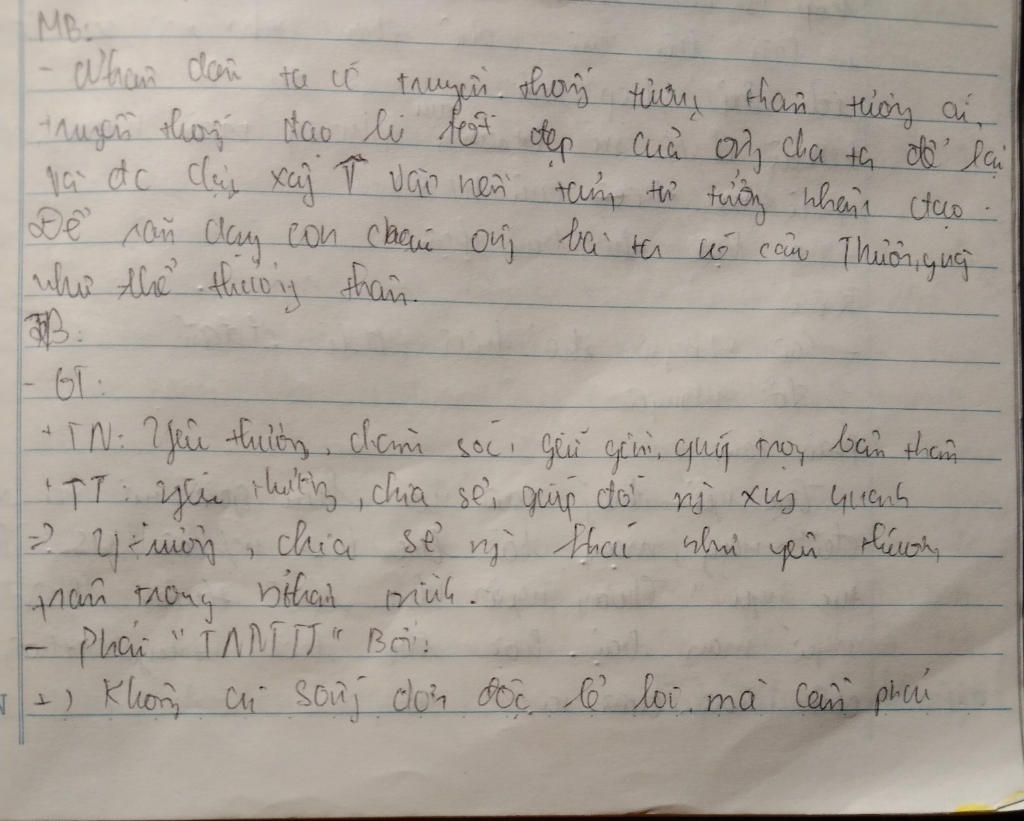 MB:
- Nhân dân ta có truyền thống tương thân tương ái,
truyền thống đạo lí tốt đẹp của ông cha ta để lại
và đc xây vào nền tảng tư tưởng nhân đạo.
Để răn dạy con cháu ông bà ta có câu Thương người
như thể thương thân.
TB:
- GT:
+ TN: Yêu thương, chăm sóc, giữ gìn, quý trọng bản thân
+ TT: yêu thương, chia sẻ, giúp đỡ ng xung quanh
=> Y thương, chia sẻ ng khác như yêu thương,
trân trọng bthân mình.
- Phải "TNNTTT" Bởi:
+) Không ai sống đơn độc lẻ loi mà cần phải